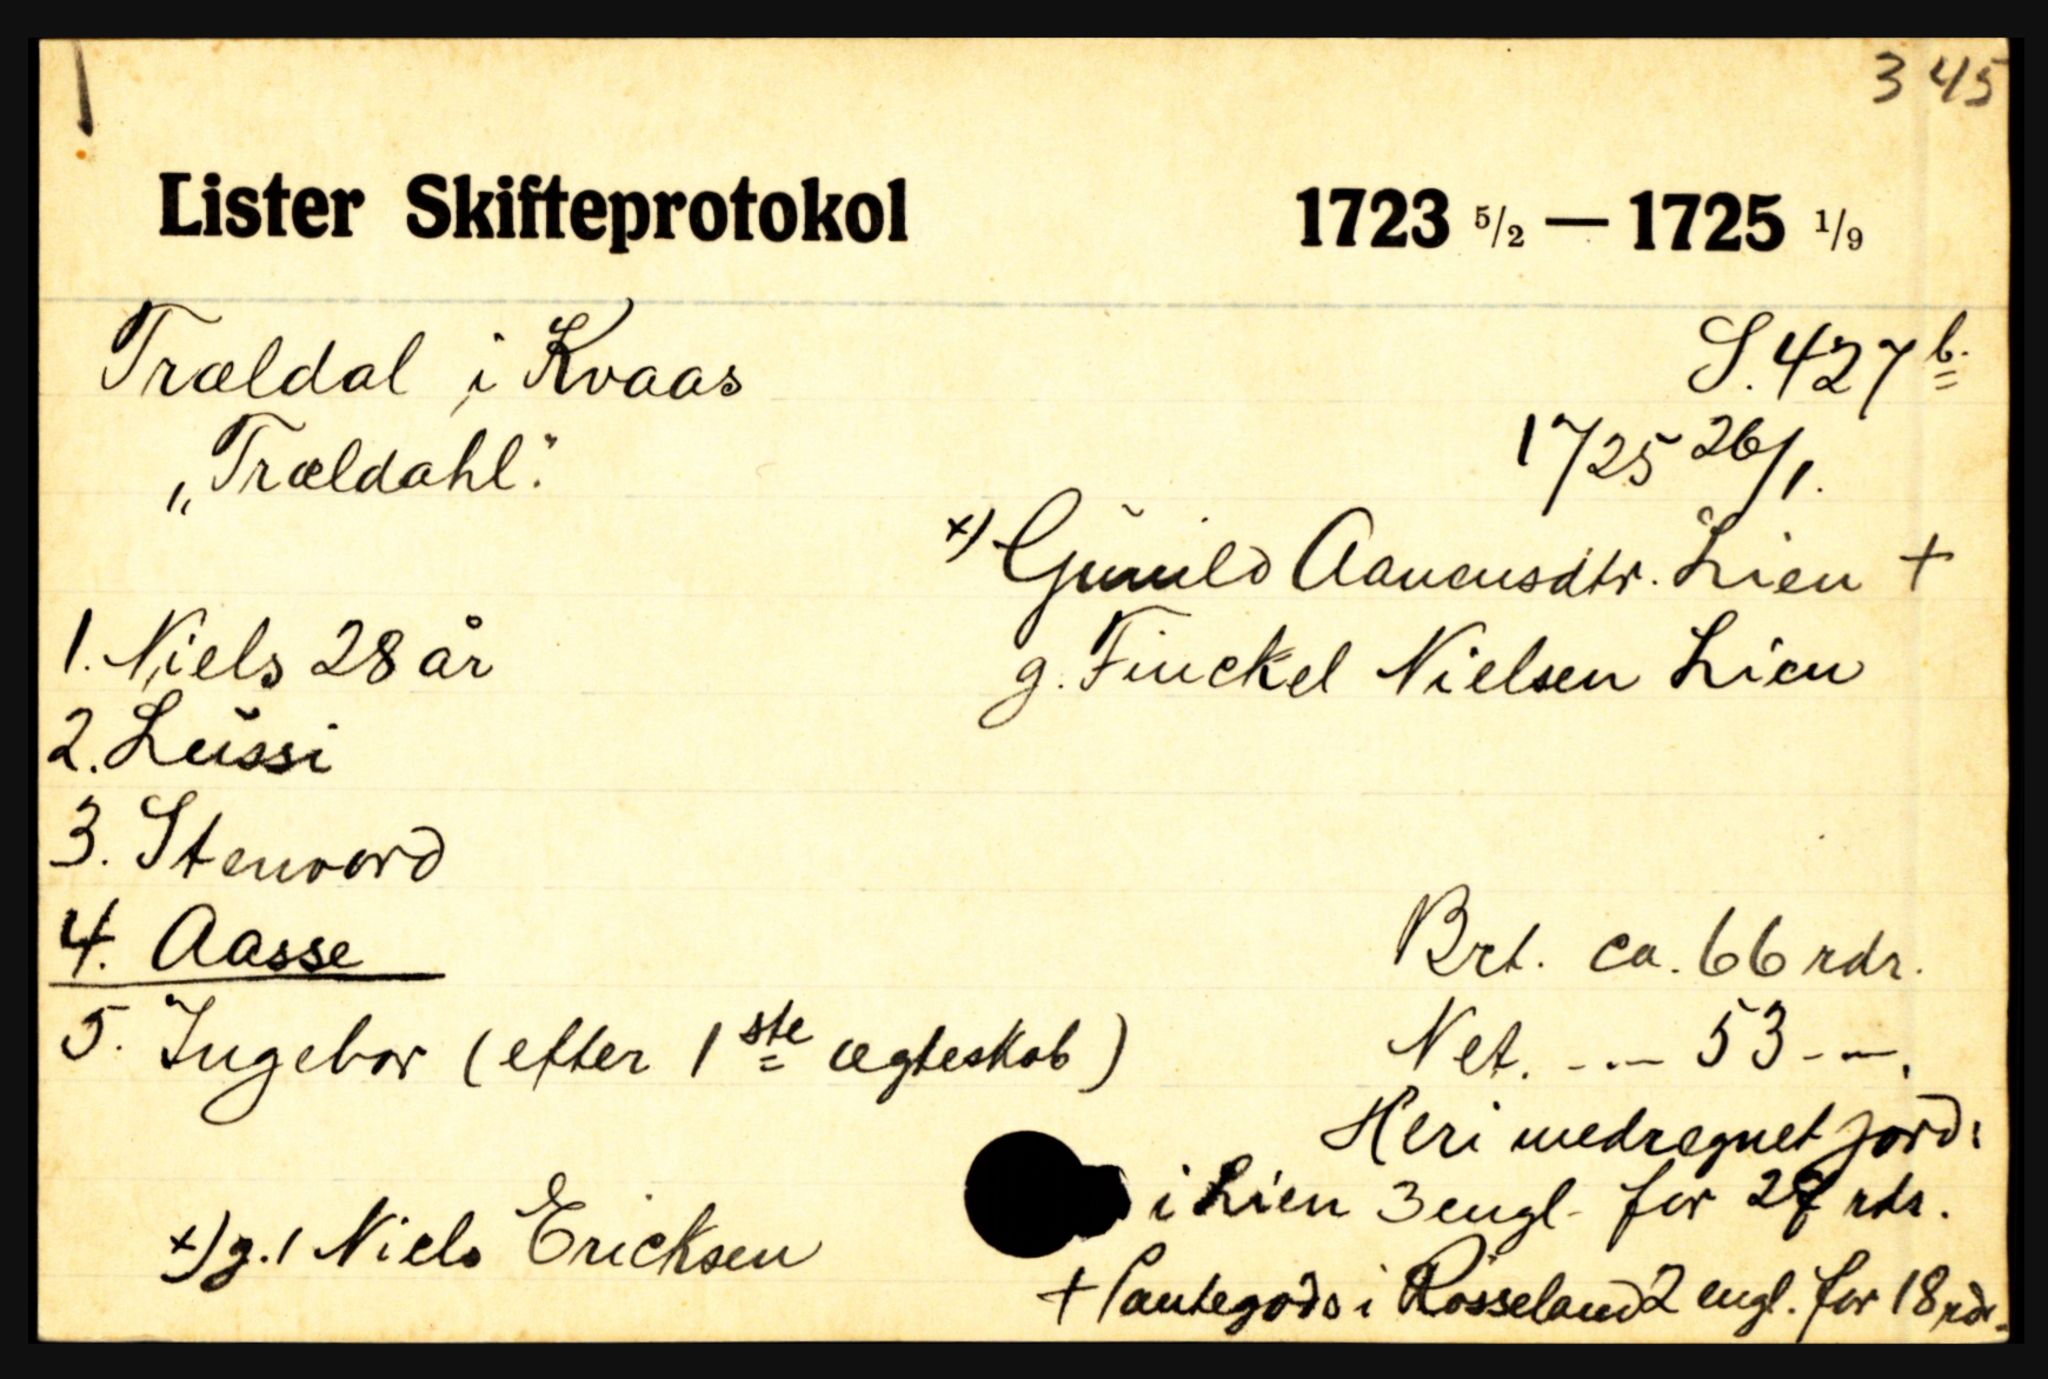 345
Lister Skifteprotokol 1723 5/2 — 1725 1/9
Trældal i Kvaas S. 427 b.
„Trældahl". 1725 26/1.
x) Gunild Aanensdtr. Lien +
1. Niels 28 år g. Finckel Nielsen Lien
2. Lussi
3. Stenvord
4. Aasse Brt. ca. 66 rdr.
5. Ingebor (efter 1ste ægteskab) Net. -.- 53 -.-.
Heri medregnet jord:
i Lien 3 engl. for 27 rdr.
x) g. 1 Niels Ericksen
+ Pantegods i Rosseland 2 engl. for 18 rdr.